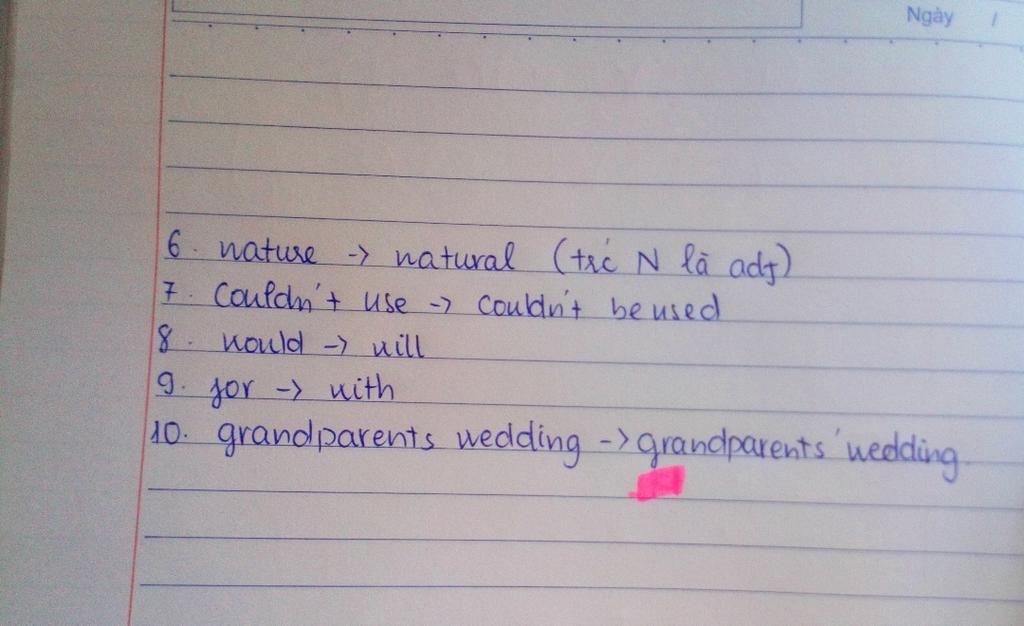 Ngày /
6. nature -> natural (trc N là adj)
7. Couldn't use -> couldn't be used
8. would -> will
9. for -> with
10. grandparents wedding -> grandparents' wedding.